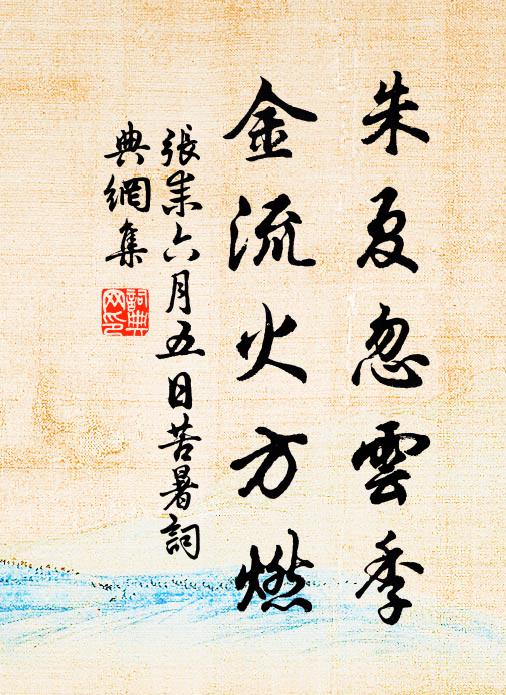 朱夏忽雲季
金流火方燃
張耒六月五日苦暑詞
典網集
詞典網印